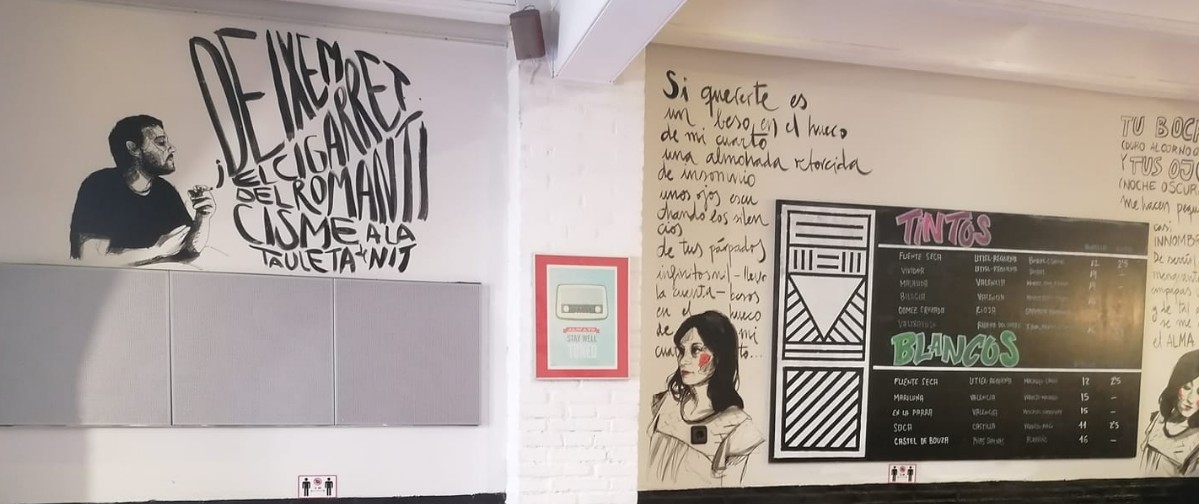 DEIXEM
EL CIGARRET
DEL ROMANTI
CISME A LA
TAULETA NIT
STAY WELL
TUNED
Si quererte es
un beso en el hueco
de mi cuarto
una almohada retorcida
de insomnio
unos ojos escu
chando los silen
cios
de tus párpados
infinitos ni-lleve
la cuenta-besos
en el hueco
de mi
cuarto...
TINTOS
FUENTE SECA UTIEL-REQUENA 12 2'5
VIVIDOR UTIEL-REQUENA
MARILUNA VALENCIA
BILOGIA VALENCIA
GOMEZ CRUZADO RIOJA
BLANCOS
FUENTE SECA UTIEL-REQUENA 12 2'5
MARILUNA VALENCIA 15 -
EN LA PARRA VALENCIA 15 -
SOCA CASTILLA 11 2'5
CASTEL DE BOUZA RIAS BAIXAS 16 -
TU BOC
(DURO ALCORNO
Y TUS OJO
(NOCHE OSCUR
me hacen pequ
casi
INNOMB
De seri
y de tal
se me
el ALMA